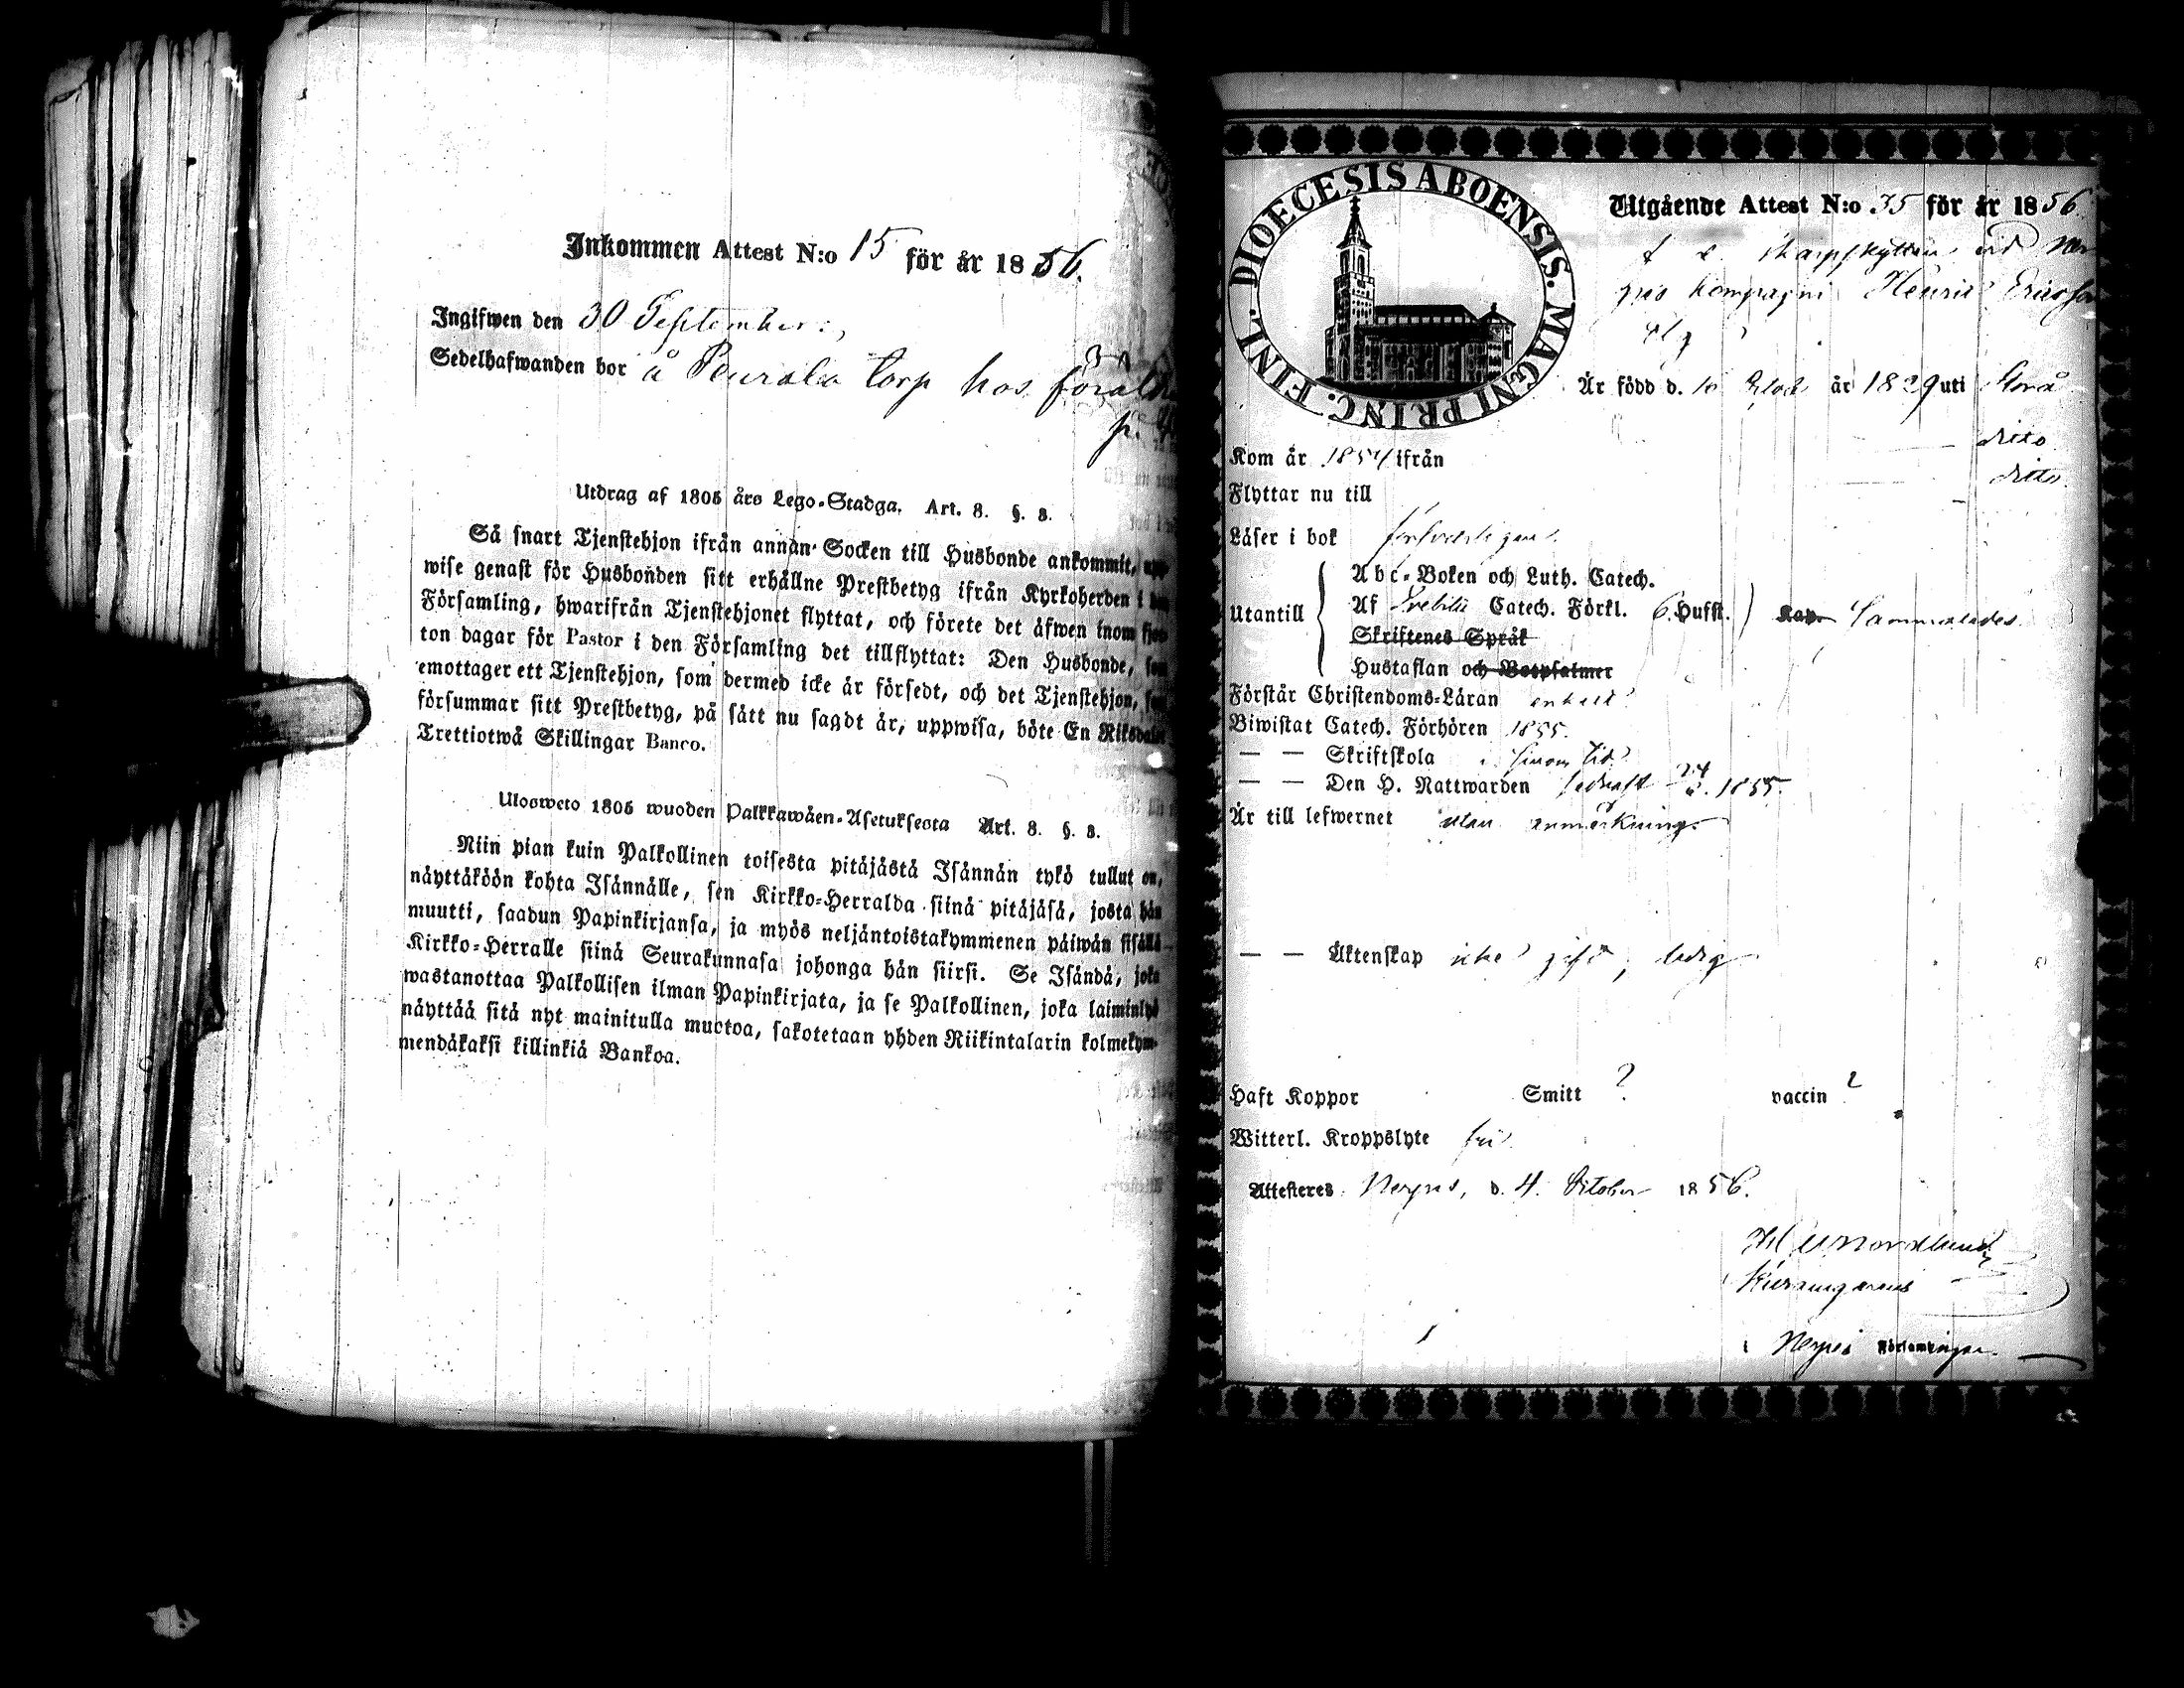 Inkommen Attest N:o 15 för år 1856.
Ingifwen den 30 September.
Sedelhafwanden bor å Peurala torp hos föräld
Utdrag af 1805 års Lego-Stadga. Art. 8. §. 3.
Så snart Tjenstehjon ifrån annan Socken till Husbonde ankommit, upp-
wise genast för Husbonden sitt erhållne Prestbetyg ifrån Kyrkoherden i den
Församling, hwarifrån Tjenstehjonet flyttat, och förete det äfwen inom fjor-
ton dagar för Pastor i den Församling det tillflyttat: Den Husbonde, som
emottager ett Tjenstehjon, som dermed icke är försedt, och det Tjenstehjon, som
försummar sitt Prestbetyg, på sätt nu sagdt är, uppwisa, böte En Riksdaler
Trettiotwå Skillingar Banco.
Ulosweto 1805 wuoden Palkkawäen-Asetuksesta Art. 8. §. 3.
Niin pian kuin Palkollinen toisesta pitäjästä Isännän tykö tullut on,
näyttäköön kohta Isännälle, sen Kirkko-Herralda siinä pitäjäsä, josta hän
muutti, saadun Papinkirjansa, ja myös neljäntoistakymmenen päiwän sisällä
Kirkko-Herralle siinä Seurakunnasa johonga hän siirsi. Se Isändä, joka
wastanottaa Palkollisen ilman Papinkirjata, ja se Palkollinen, joka laiminlyö
näyttää sitä nyt mainitulla muotoa, sakotetaan yhden Riikintalarin kolmekym-
mendäkaksi killinkiä Bankoa.
DIOECESIS ABOENSIS. MAGNI PRINC. FINL.
Utgående Attest N:o 35 för år 1856.
f. d. skarpskytten vid Ner
pes kompagni Henric Ericsson
Är född d. 10 år 1829 uti Storå
Kom år 1854 ifrån dito
Flyttar nu till dito
Läser i bok försvarligen
Abc-Boken och Luth. Catech.
Utantill Af Svebilii Catech. Förkl. 6. Husst. Kap. Sammaledes
Skriftenes Språk
Hustaflan och Botpsalmer
Förstår Christendoms-Läran enkelt
Biwistat Catech. Förhören 1855.
— — Skriftskola i sinom tid
— — Den H. Nattwarden sednast 1855.
Är till lefwernet utan anmärkning.
— — Äktenskap icke gift, ledig
Haft Koppor Smitt ? vaccin ?
Witterl. Kroppslyte fri
Attesteres Nerpes, d. 4. October 1856.
Nordlund
i Nerpes Församlingar.